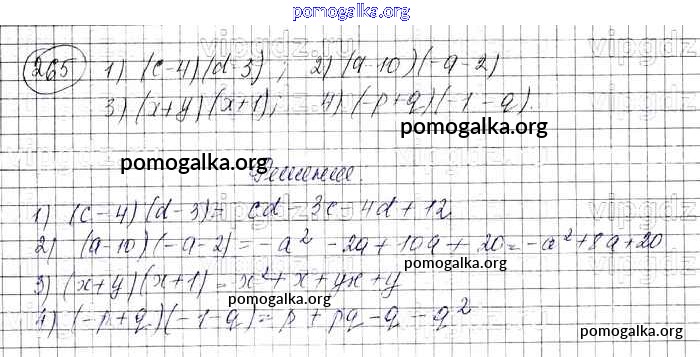 pomogalka.org
vipgdz.ru
vipgdz
265 1) (c-4)(d-3); 2) (a-10)(-a-2)
3) (x+y)(x+1); 4) (-p+q)(-1-q).
pomogalka.org
pomogalka.org
Решение.
1) (c-4)(d-3)= cd-3c-4d+12
2) (a-10)(-a-2)=-a²-2a+10a+20=-a²+8a+20
pomogalka.org
3) (x+y)(x+1)=x²+x+yx+y
pomogalka.org
4) (-p+q)(-1-q)=p+pq-q-q²
pomogalka.org